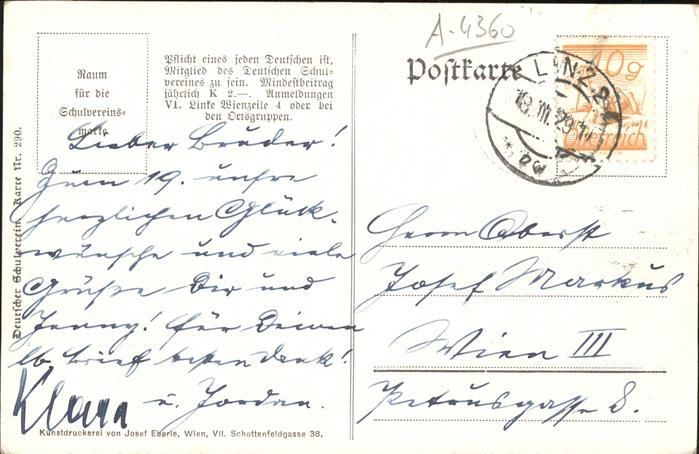 A-4360
Raum
für die
Schulvereins-
marke
Pflicht eines jeden Deutschen ist,
Mitglied des Deutschen Schul-
vereines zu sein. Mindestbeitrag
jährlich K 2.—. Anmeldungen
VI. Linke Wienzeile 4 oder bei
den Ortsgruppen.
Postkarte
LINZ 2
18.III.29
40g
Österreich
Deutscher Schulverein, Karte Nr. 290.
Lieber Bruder!
Zum 19. unsre
herzlichen Glück-
wünsche und viele
Grüße Dir und
Jenny! für Deinen
lb Brief besten Dank!
Klara
u. Jordan.
Herrn Oberst
Josef Markus
Wien III
Petrusgasse 8.
Kunstdruckerei von Josef Eberle, Wien, VII. Schottenfeldgasse 38.